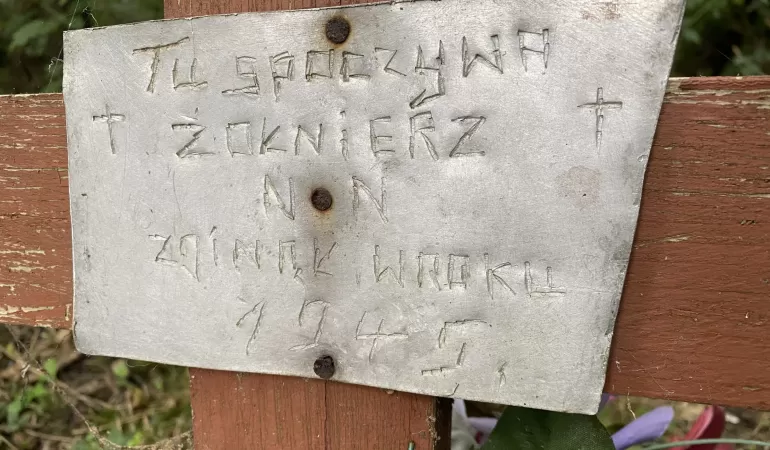 Tu spoczywa
ŻOŁNIERZ
N N
ZGINĄŁ W ROKU
1945.